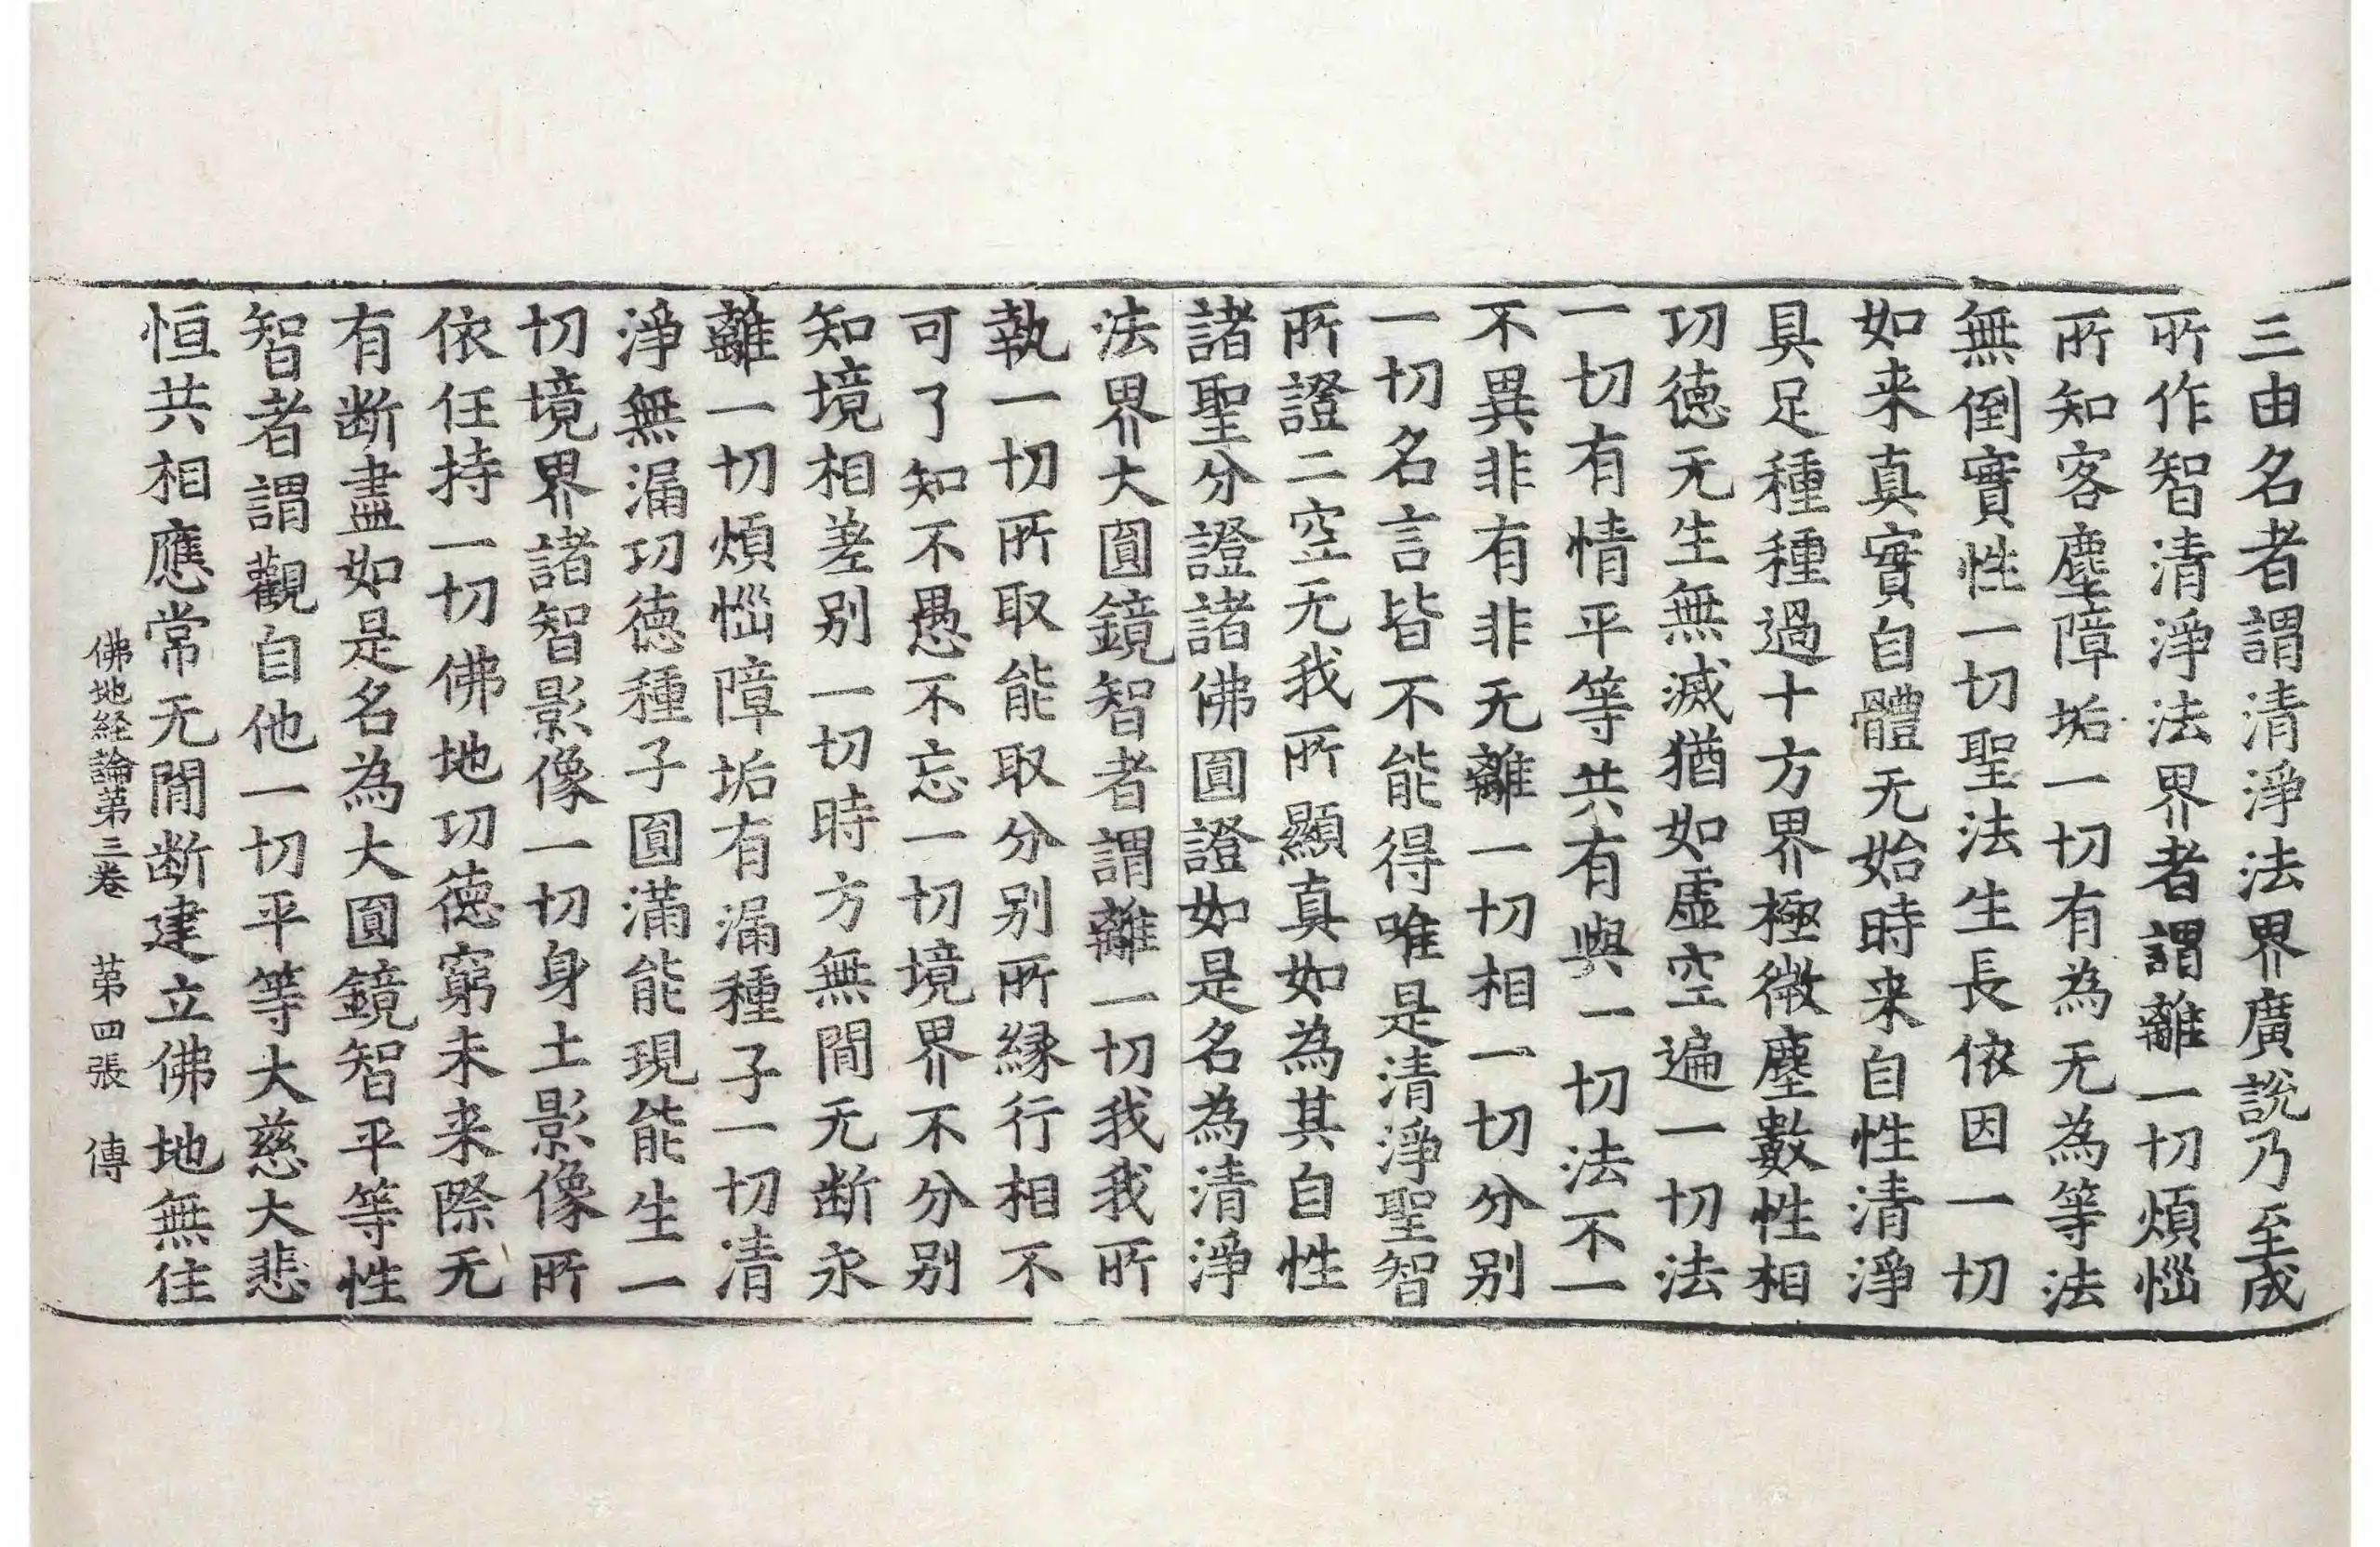 三由名者謂清淨法界廣說乃至成
所作智清淨法界者謂離一切煩惱
所知客塵障垢一切有為无為等法
無倒實性一切聖法生長依因一切
如来真實自體无始時来自性清淨
具足種種過十方界極微塵數性相
功德无生無滅猶如虛空遍一切法
一切有情平等共有與一切法不一
不異非有非无離一切相一切分别
一切名言皆不能得唯是清淨聖智
所證二空无我所顯真如為其自性
諸聖分證諸佛圓證如是名為清淨
法界大圓鏡智者謂離一切我我所
執一切所取能取分别所縁行相不
可了知不愚不忘一切境界不分别
知境相差别一切時方無間无断永
離一切煩惱障垢有漏種子一切清
淨無漏功德種子圓滿能現能生一
切境界諸智影像一切身土影像所
依任持一切佛地功德窮未来際无
有断盡如是名為大圓鏡智平等性
智者謂觀自他一切平等大慈大悲
恒共相應常无間断建立佛地無住
佛地経論第三卷 第四張 傳